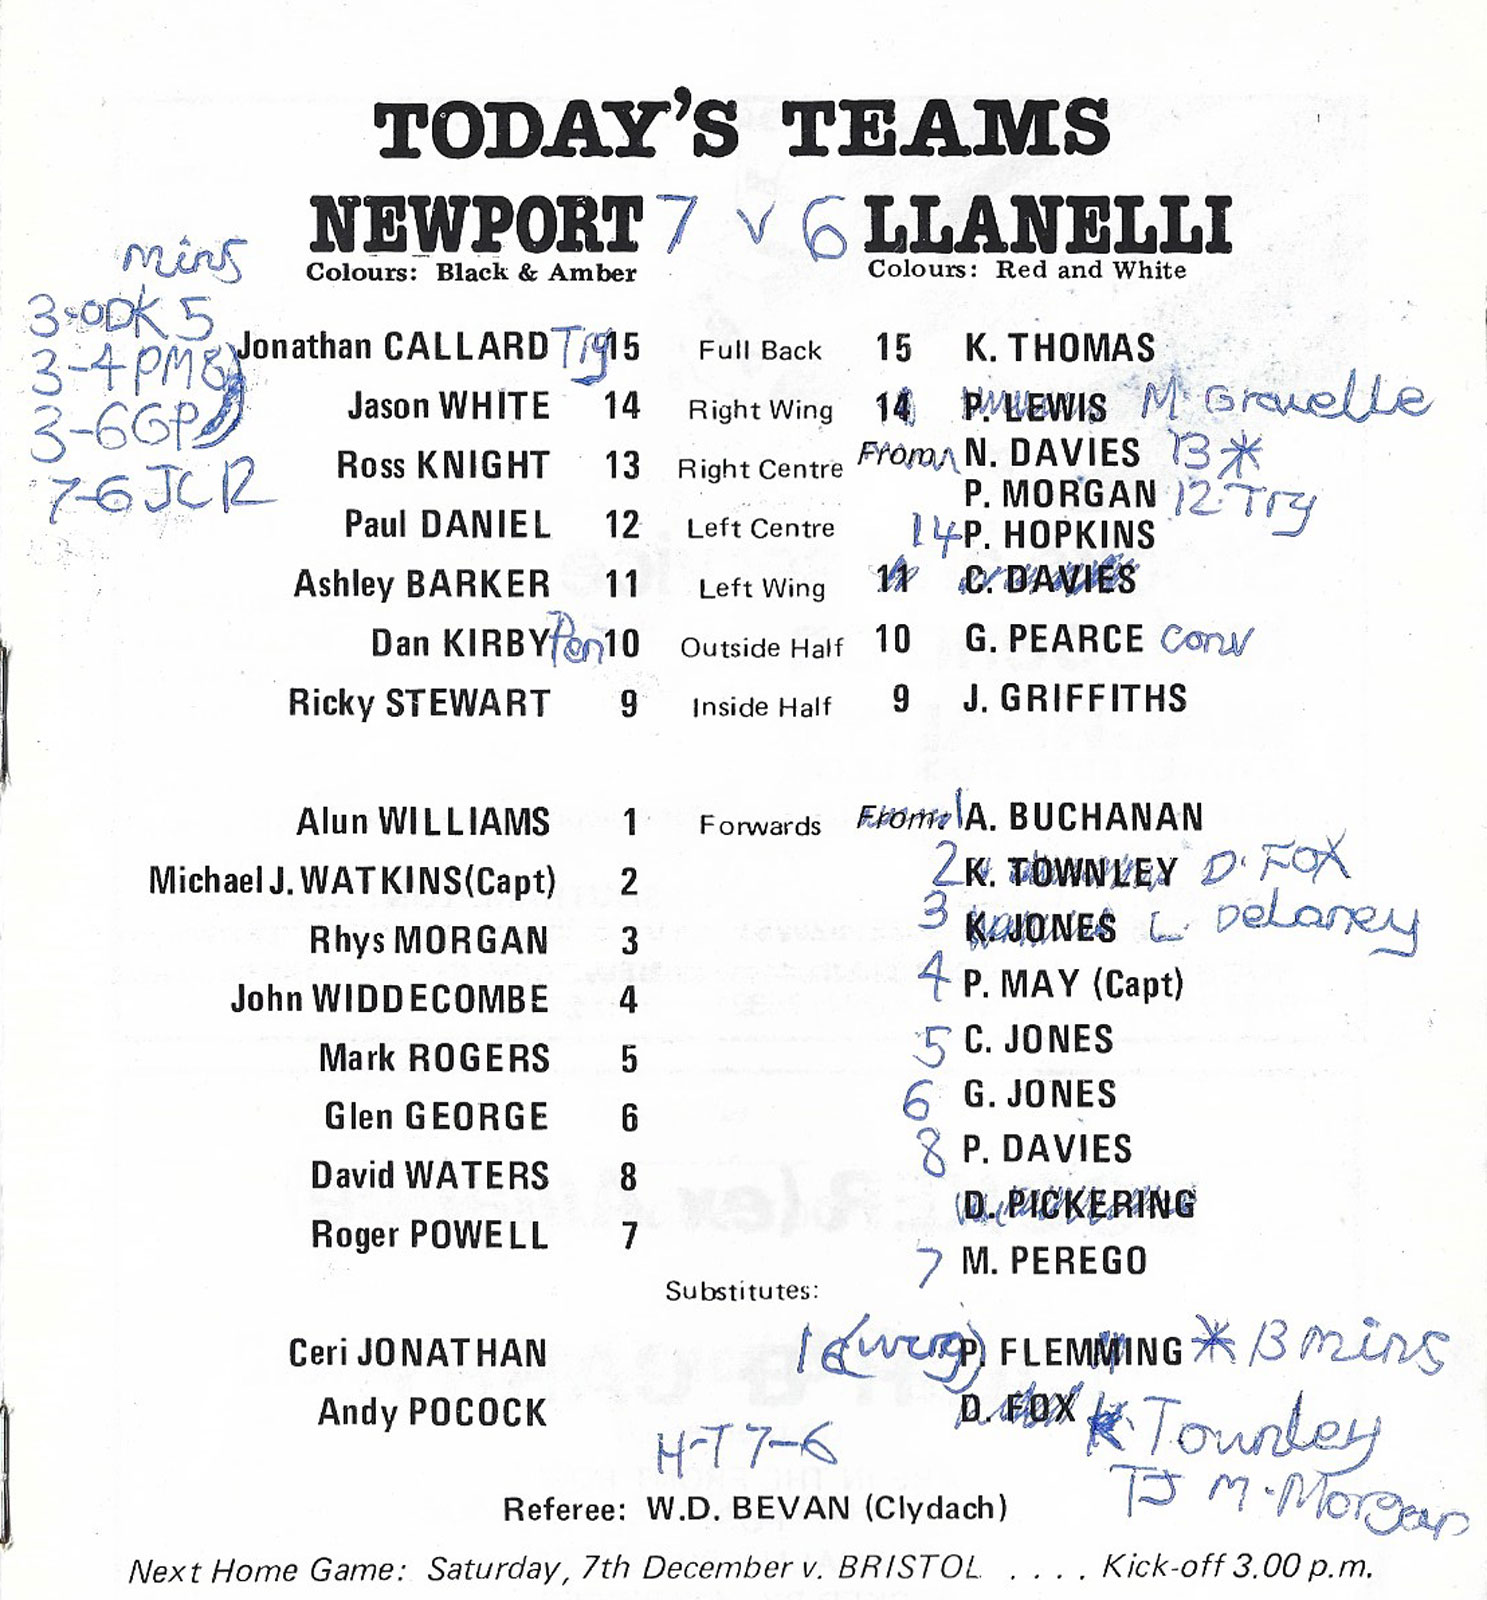 TODAY'S TEAMS
NEWPORT 7 v 6 LLANELLI
Colours: Black & Amber Colours: Red and White
mins
3-0DK 5
3-4PM8
3-6GP
7-6JC 12
Jonathan CALLARD Try 15 Full Back 15 K. THOMAS
Jason WHITE 14 Right Wing 14 P. LEWIS M Gravelle
Ross KNIGHT 13 Right Centre From: N. DAVIES 13 *
P. MORGAN 12 Try
Paul DANIEL 12 Left Centre 14 P. HOPKINS
Ashley BARKER 11 Left Wing 11 C. DAVIES
Dan KIRBY Pen 10 Outside Half 10 G. PEARCE Conv
Ricky STEWART 9 Inside Half 9 J. GRIFFITHS
Alun WILLIAMS 1 Forwards From: 1 A. BUCHANAN
Michael J. WATKINS (Capt) 2 2 K. TOWNLEY D. FOX
Rhys MORGAN 3 3 K. JONES L Delaney
John WIDDECOMBE 4 4 P. MAY (Capt)
Mark ROGERS 5 5 C. JONES
Glen GEORGE 6 6 G. JONES
David WATERS 8 8 P. DAVIES
D. PICKERING
Roger POWELL 7 7 M. PEREGO
Substitutes:
Ceri JONATHAN 16 (wing) P. FLEMMING * 13 mins
Andy POCOCK D. FOX K Townley
H-T 7-6
TJ M. Morgan
Referee: W.D. BEVAN (Clydach)
Next Home Game: Saturday, 7th December v. BRISTOL .... Kick-off 3.00 p.m.